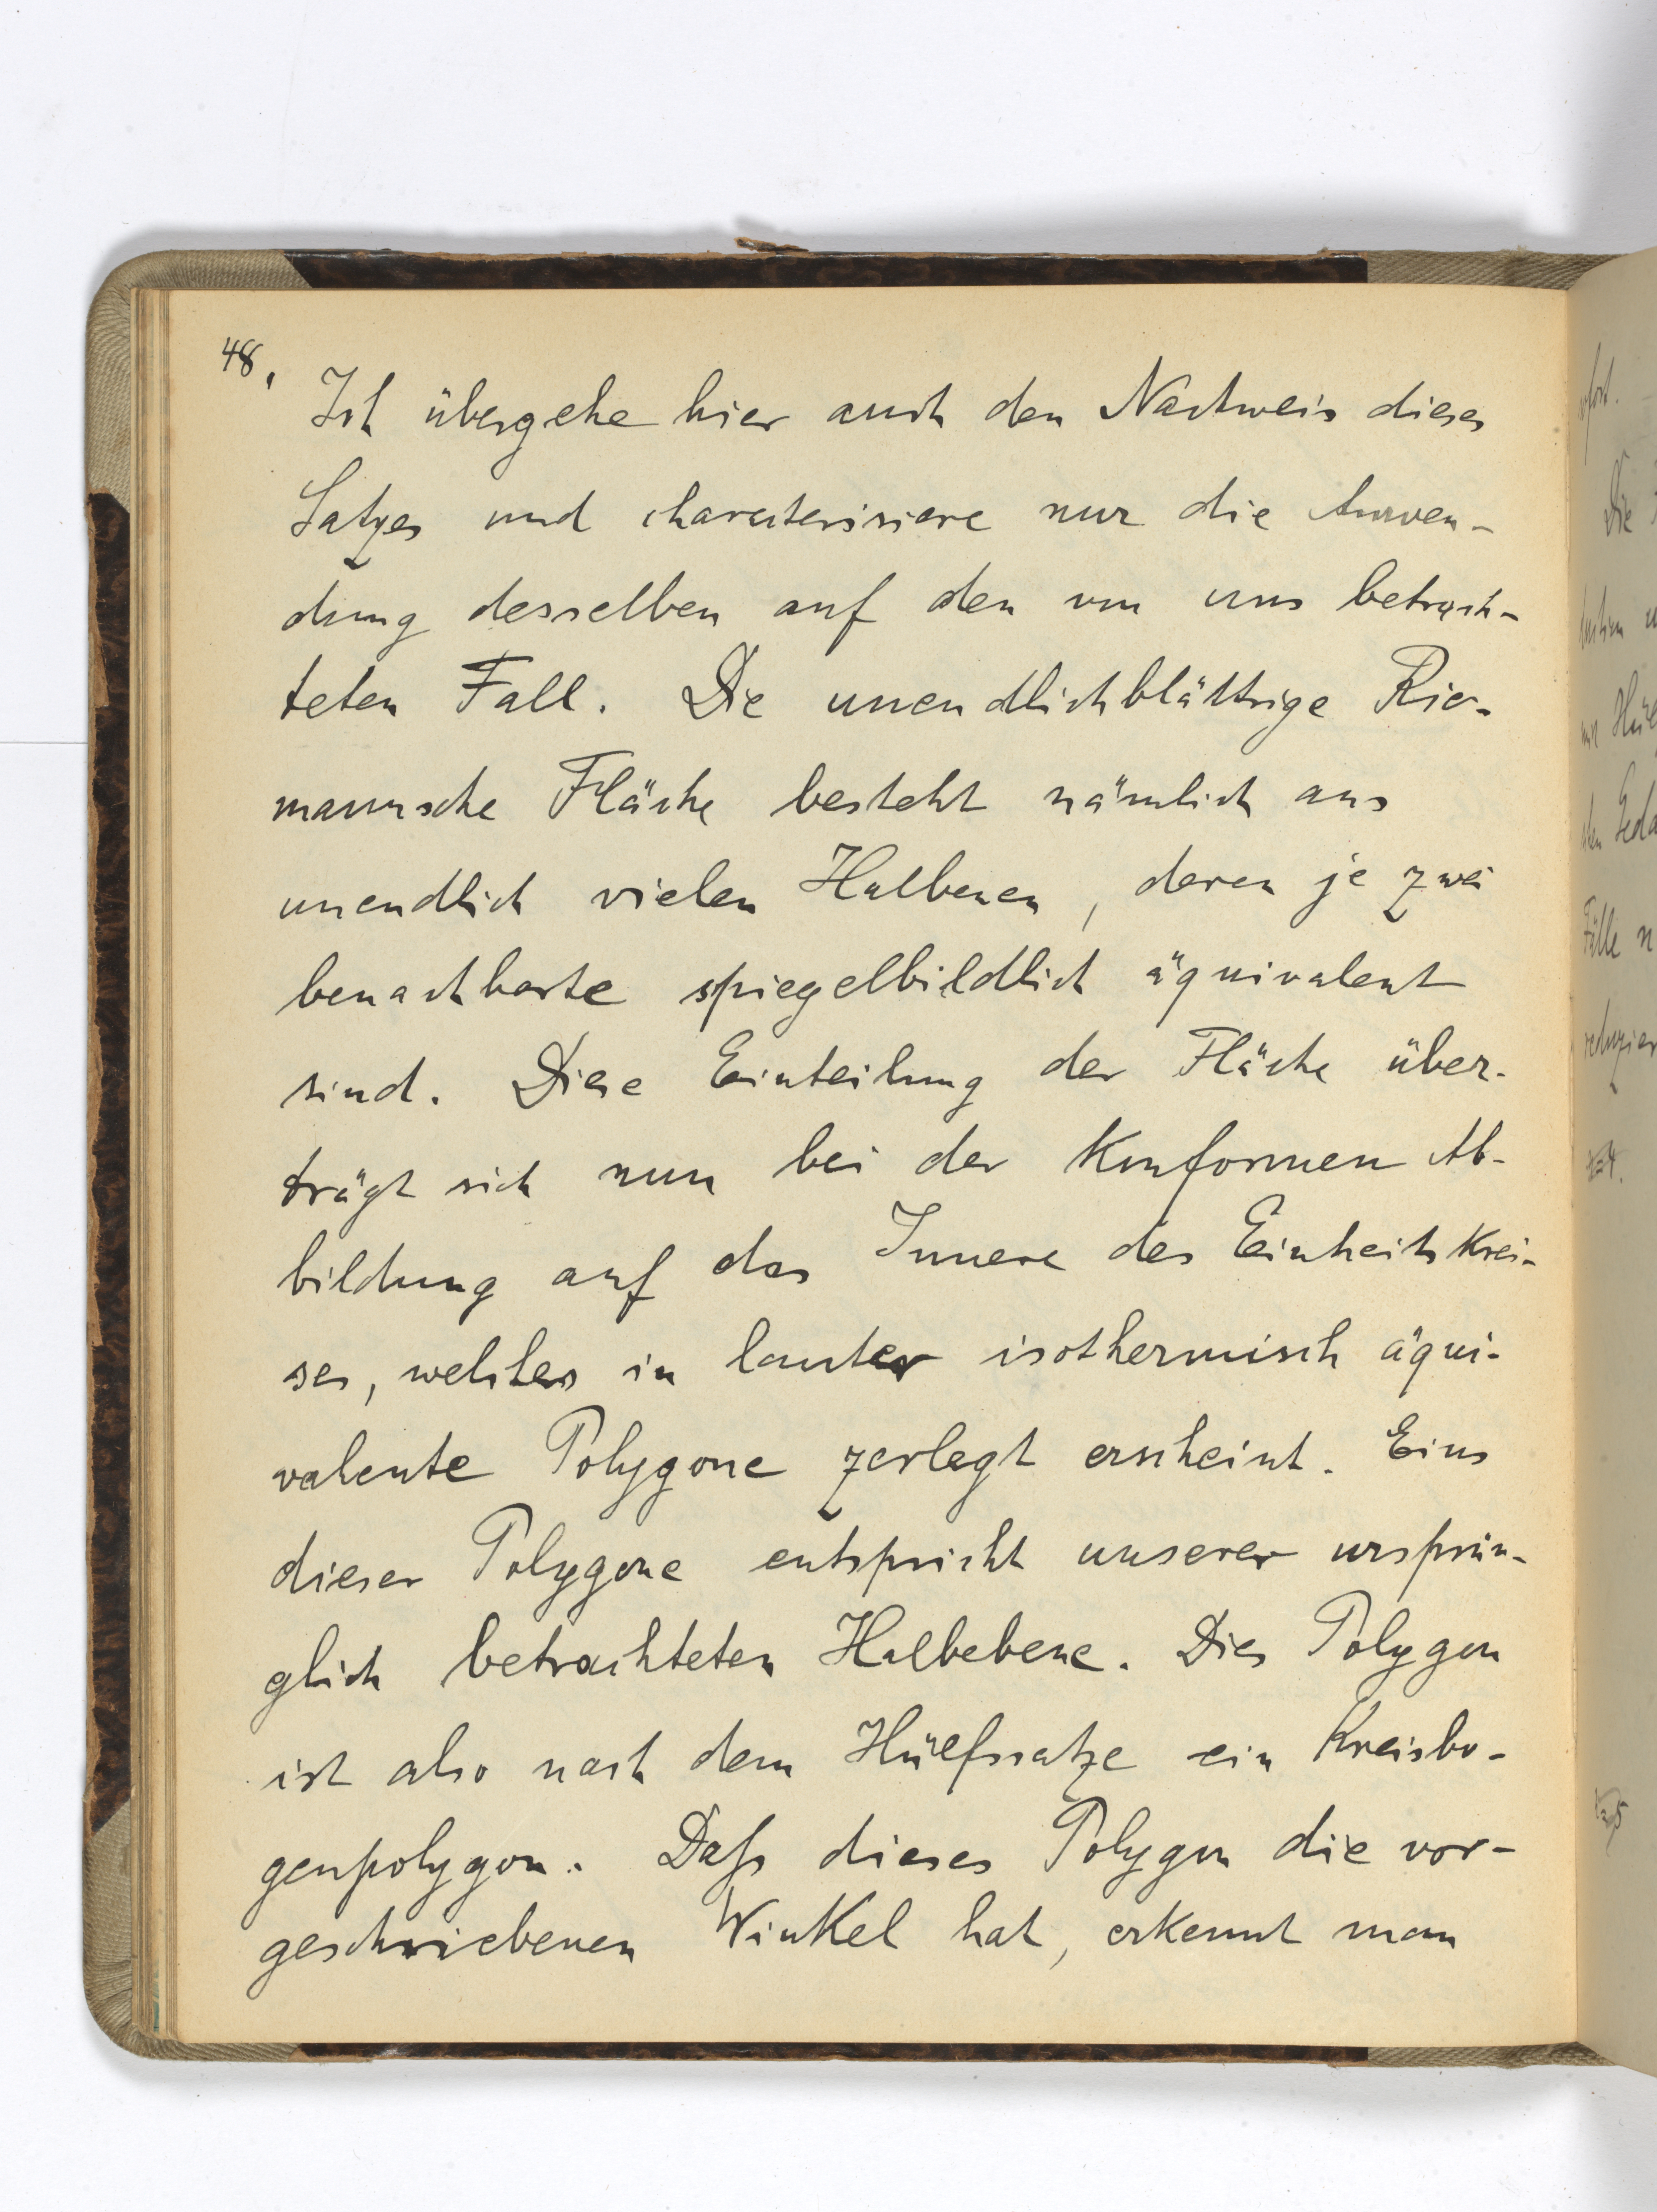 48.
Ich übergehe hier auch den Nachweis dieses
Satzes und characterisiere nur die Anwen-
dung desselben auf den von uns betrach-
teten Fall. Die unendlichblättrige Rie-
mannsche Fläche besteht nämlich aus
unendlich vielen Halbenen, deren je zwei
benachbarte spiegelbildlich äquivalent
sind. Diese Einteilung der Fläche über-
trägt sich nun bei der konformen Ab-
bildung auf das Innere des Einheitskrei-
ses, welches in lauter isothermisch äqui-
valente Polygone zerlegt erscheint. Eins
dieser Polygone entspricht unserer ursprün-
glich betrachteten Halbebene. Dies Polygon
ist also nach dem Hülfssatze ein Kreisbo-
genpolygon. Daß dieses Polygon die vor-
geschriebenen Winkel hat, erkennt man